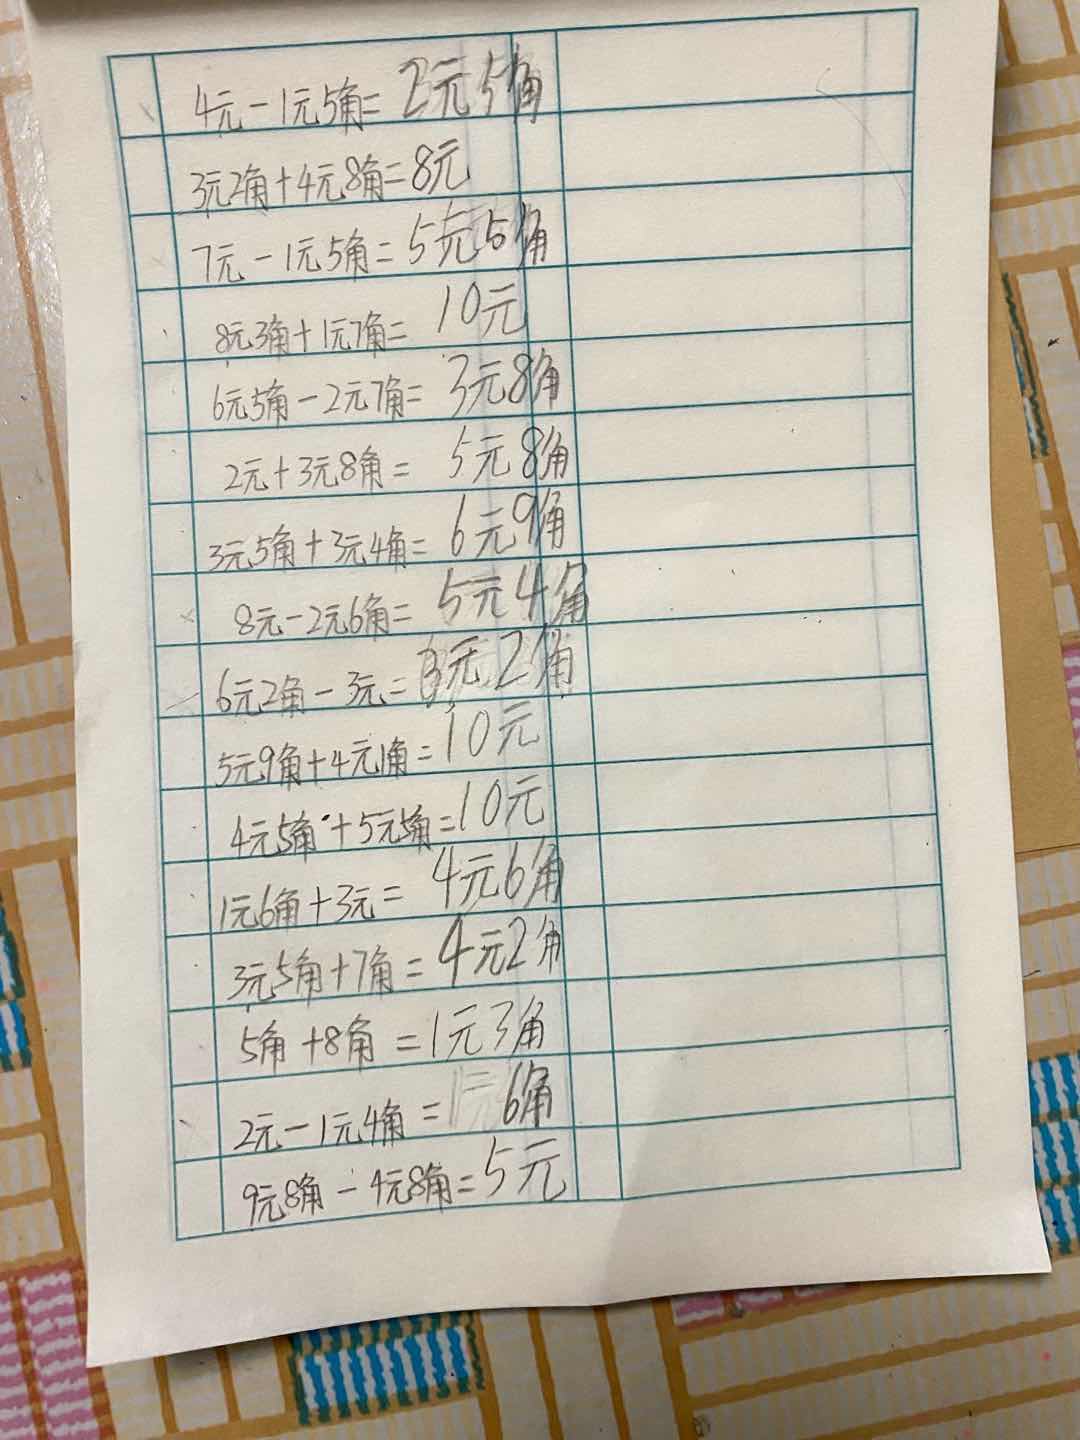 4元-1元5角=2元5角
3元2角+4元8角=8元
7元-1元5角=5元5角
8元3角+1元7角=10元
6元5角-2元7角=3元8角
2元+3元8角=5元8角
3元5角+3元4角=6元9角
8元-2元6角=5元4角
6元2角-3元=3元2角
5元9角+4元1角=10元
4元5角+5元5角=10元
1元6角+3元=4元6角
3元5角+7角=4元2角
5角+8角=1元3角
2元-1元4角=6角
9元8角-4元8角=5元